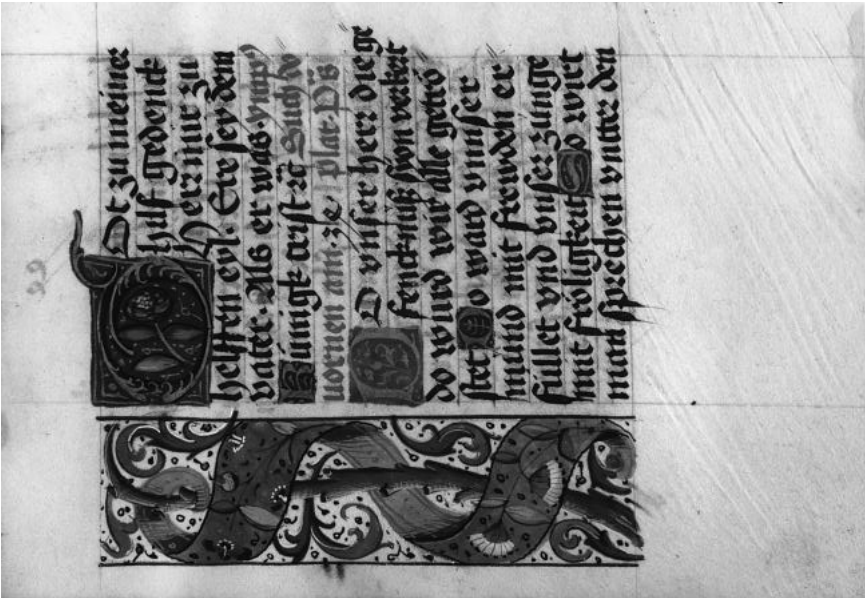 GOt zu meiner
hilf gedenck
Herr mir zu
helffen eyl. Ere sey dem
vater. Als er was. ymn9
Kunigk crist ꝛc Such do
vornen am .ze. plat. Ps
DO vnser herr die ge
fenckniß syon verkert
do wurd wir alle getrö
stet So ward vnnser
mund mit frewden er
füllet vnd vnser zunge
mit fröligkeit So wirt
man sprechen vntter den